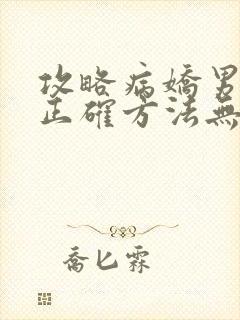 攻略病嬌男
正確方法無
喬匕霖